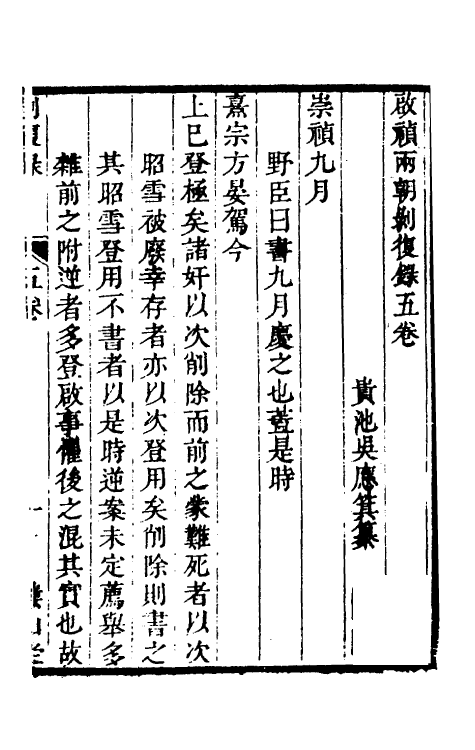 啟禎兩朝剝復錄五卷
貴池吳應箕纂
崇禎九月
野臣曰書九月慶之也葢是時
熹宗方晏駕今
上巳登極矣諸奸以次削除而前之𮐃難死者以次
昭雪被廢幸存者亦以次登用矣削除則書之
其昭雪登用不書者以是時逆案未定薦舉多
雜前之附逆者多登啟事懼後之混其實也故
五卷
一